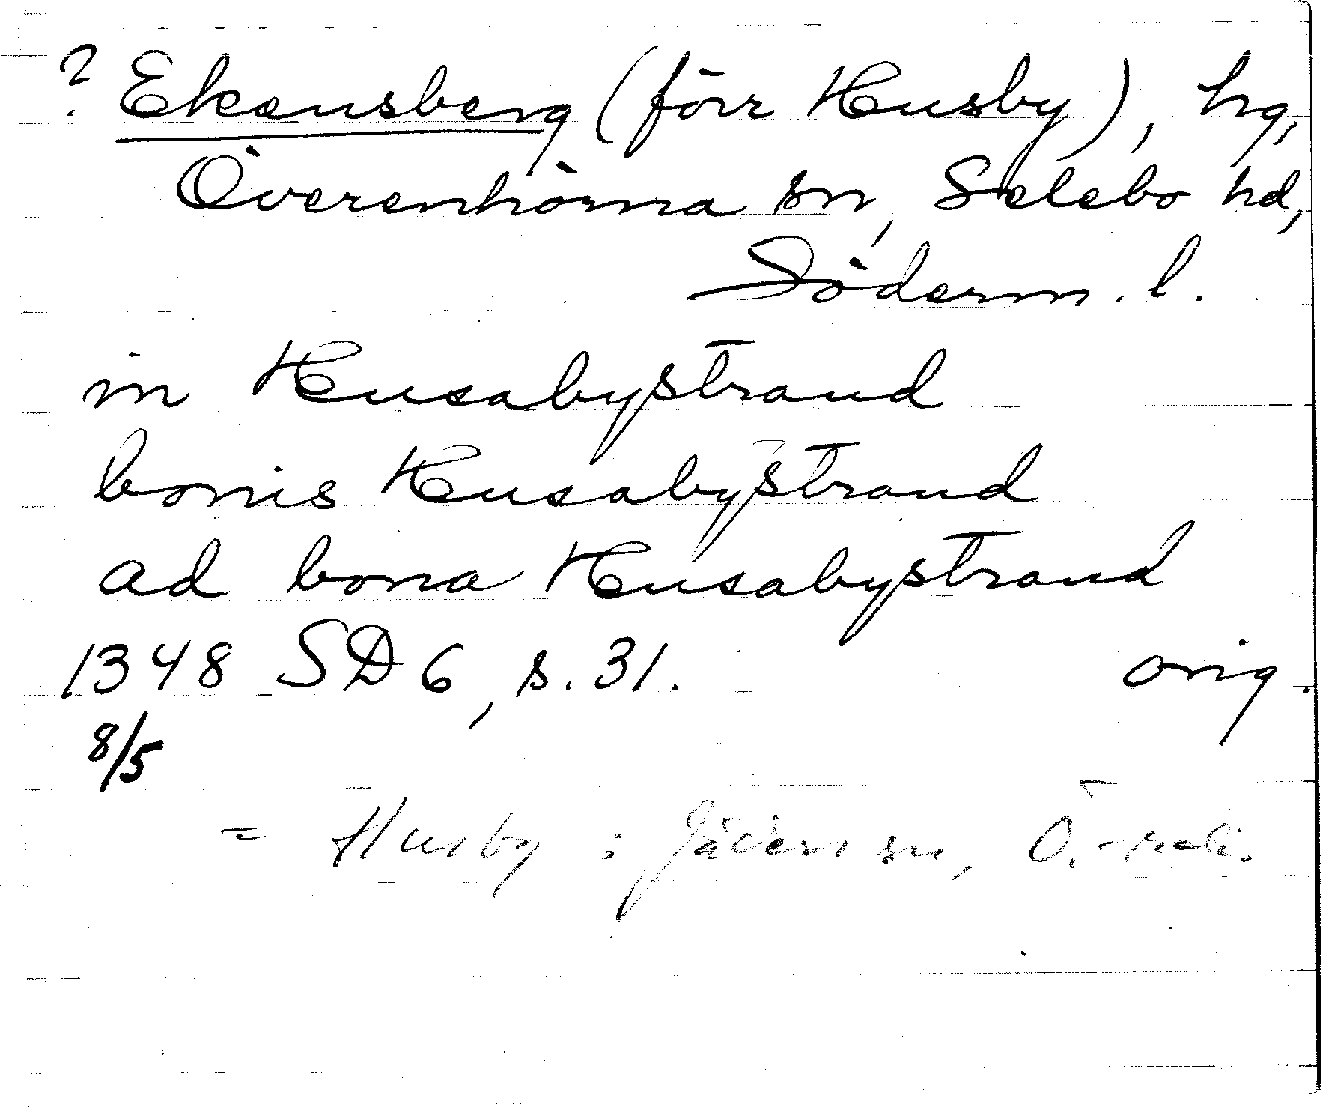 ? Ekensberg (förr Husby), hg,
Överenhörna sn, Selebo hd,
Söderm. l.
in Husabystrand
bonis Husabystrand
ad bona Husabystrand
1348 SD 6, s. 31. orig.
8/5
= Husby i sn, Ö.